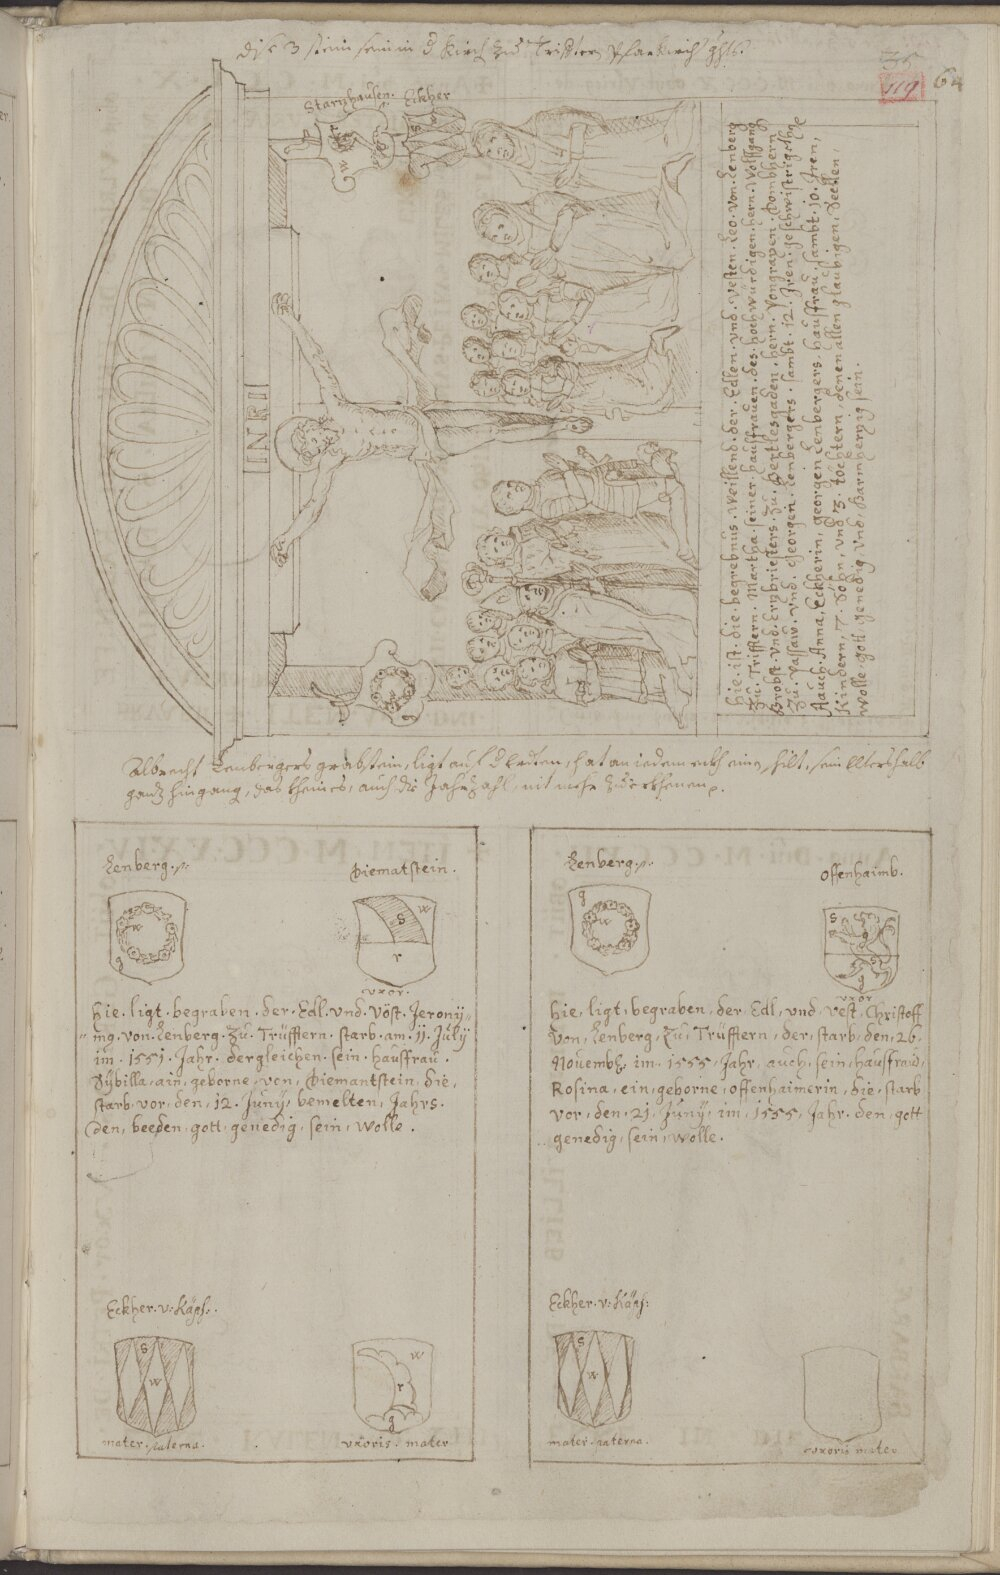 35
119
64
dise 3 stein sein in d kirch zu Trifftern Pfarrkirch
Starzhausen. Eckher
INRI
Hie. ist. die. begrebnus. Weillend. der. Edlen. vnd. Vesten. Leo. von. Zenberg
Zu. Trifftern. Martha. seiner. hausfrauen. des. hochwürdigen. hern. Wolffgang
Brobst. vnd. Erzbriesters. Zu. Bertlesgaden. hern. Vongraven. Dombhern
Zu. Passaw. vnd. Georgen. Zenbergers. sambt. 12. Iren. geschwistrigethe
Aauch. Anna. Eckherin, georgen Zenbergers. hausfrau. sambt. 10. Iren,
Kindern, 7. Söhn, vnd 3. töchtern denen allen glaubigen, Seelen,
wolle. gott. genedig. vnd. Barmherzig sein.
Albrecht Zenbergers grabstein, ligt auf d Erden, hat an iedem eckh einen schilt, sein Elters halb
gantz hingang, das kheines, auch die Jahrzahl, nit mehr zu erkhenen.
Zenberg.
Diematstein.
w
g
S
w
r
vxor.
Hie. ligt. begraben. der. Edl. vnd. Vöst. Jerony=
=mg. von. Zenberg. Zu. Trüfftern. starb. am. 11. July
im. 1551. Jahr. dergleichen. sein. hausfrau.
Sybilla, ain, geborne, von, Diemantstein, die,
starb, vor, den, 12. Juny, bemelten, Jahrs.
den, beeden, gott, genedig, sein, Wolle.
Eckher. v: Käpf:.
S
w
w
r
g
mater. paterna.
vxoris. mater
Zenberg.
Offenhaimb.
g
w
S
g
g
vxor
Hie, ligt, begraben, der, Edl, und, Vest, Christoff
Von, Zenberg, Zu, Trüfftern, der, starb, den, 26.
Novembḥ. im. 1555. Jahr, auch, sein, hausfraw,
Rosina, ein, geborne, offenhaimerin, die, starb
vor, den, 21, Juny, im, 1555, Jahr. den, gott
genedig, sein, wolle.
Eckher. v: Käpf:
S
w
mater. paterna.
vxoris mater